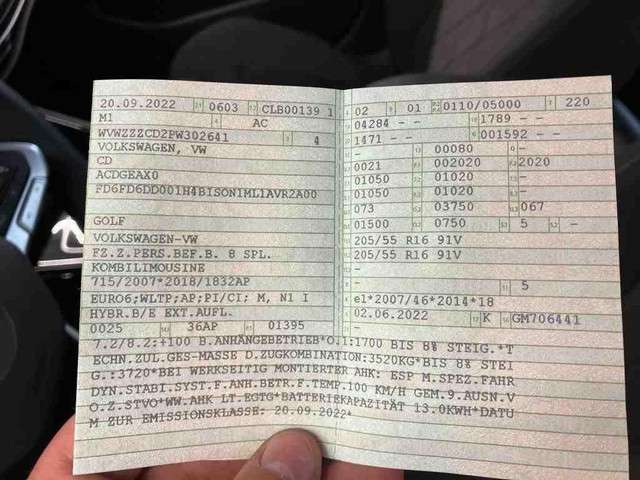 20.09.2022 0603 CLB00139 1
M1 AC
WVWZZZCD2PW302641 4
VOLKSWAGEN, VW
CD
ACDGEAX0
FD6FD6DD001H4BISON1ML1AVR2A00
GOLF
VOLKSWAGEN-VW
FZ.Z.PERS.BEF.B. 8 SPL.
KOMBILIMOUSINE
715/2007*2018/1832AP
EURO6;WLTP;AP;PI/CI; M, N1 I
HYBR.B/E EXT.AUFL.
0025 36AP 01395
02 01 0110/05000 220
04284 - - 1789 - -
1471 - - 001592 - -
- 00080 -
0021 002020 2020
01050 01020 -
01050 01020 -
073 03750 067
01500 0750 5 -
205/55 R16 91V
205/55 R16 91V
-
- 5
e1*2007/46*2014*18
02.06.2022 K GM706441
7.2/8.2:+100 B.ANHÄNGEBETRIEB*O.1:1700 BIS 8% STEIG.*T
ECHN.ZUL.GES-MASSE D.ZUGKOMBINATION:3520KG*BIS 8% STEI
G.:3720*BEI WERKSEITIG MONTIERTER AHK: ESP M.SPEZ.FAHR
DYN.STABI.SYST.F.ANH.BETR.F.TEMP.100 KM/H GEM.9.AUSN.V
O.Z.STVO*WW.AHK LT.EGTG*BATTERIEKAPAZITÄT 13.0KWH*DATU
M ZUR EMISSIONSKLASSE: 20.09.2022*